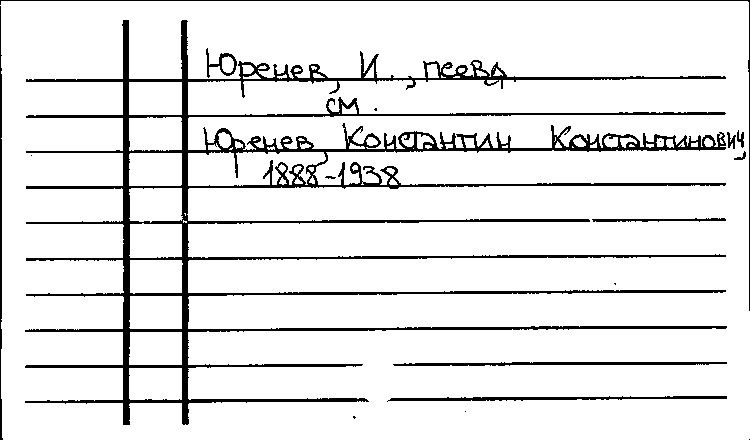 Юренев, И., псевд.
см.
Юренев, Константин Константинович,
1888-1938